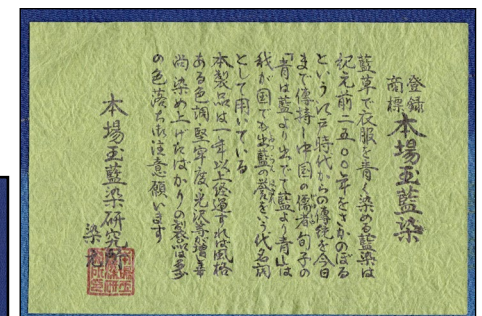 登録
商標
本場玉藍染
藍草で衣服を青く染める藍染は
紀元前二五〇〇年をさかのぼる
という江戸時代からの傳統を今日
まで傳持し中国の儒者旬子の
「青は藍より出でて藍より青」は
我が国でも出藍の誉をいう代名詞
として用いている
本製品は一年以上経過すれば風格
ある色調堅牢度光沢等が増
尚染め上げたばかりの製品は多少
の色落ち御注意願います
本場玉藍染研究所
染元